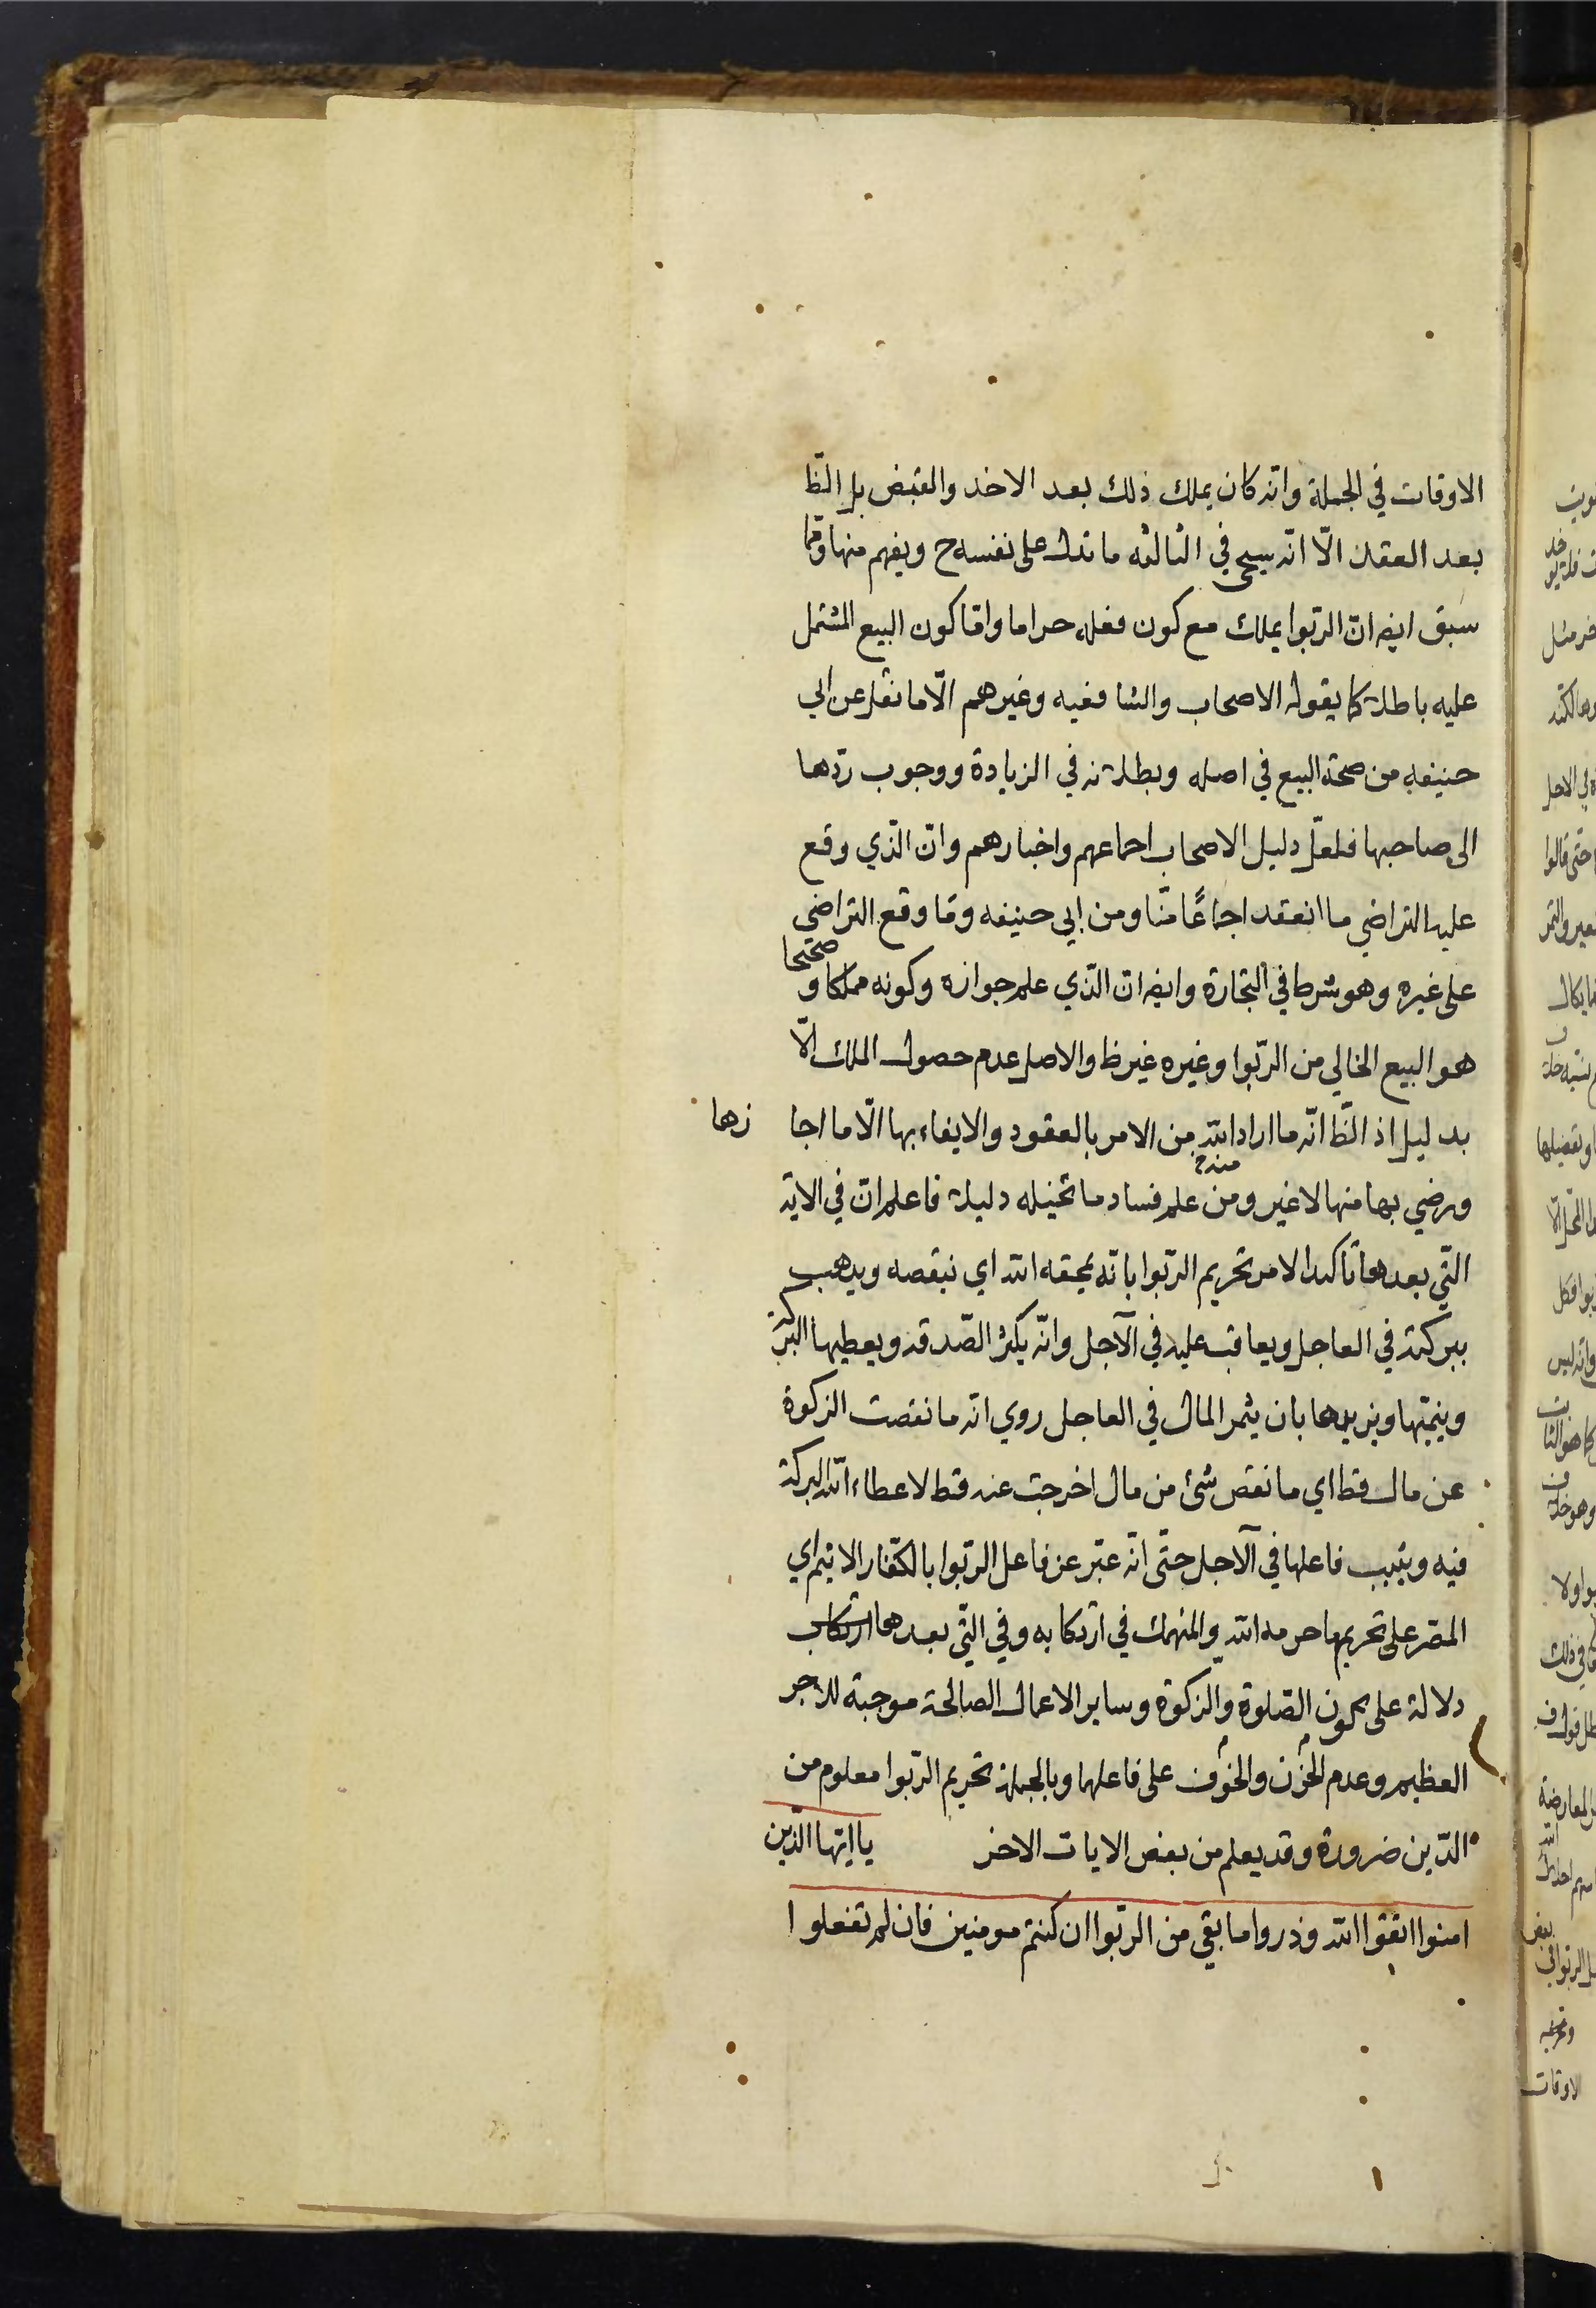 الاوقات في الجملة وانه كان يملك ذلك بعد الاخذ والقبض بل الظ
بعد العقد الّا انّه سيجي في الثالثه ما تدل على نفسه ح ويفهم منها وممّا
سبق ايضه انّ الربوا يملك مع كون فعله حراما وامّا كون البيع المشتمل
عليه باطلا كما يقوله الاصحاب والشافعيه وغيرهم الّا ما نقل عن ابي
حنيفه من صحة البيع في اصله وبطلانه في الزيادة ووجوب ردّها
الى صاحبها فلعلّ دليل الاصحاب اجماعهم واخبارهم وانّ الّذي وقع
عليه التراضي ما انعقد اجماعًا منّا ومن ابي حنيفه وما وقع التراضي
على غيره وهو شرط في التجارة وايضه انّ الّذي علم جوازه وكونه مملكا و صحيحا
هو البيع الخالي من الرّبوا وغيره غير ظ والاصل عدم حصول الملك الّا
بدليل اذ الظّ انّه ما اراد الله من الامر بالعقود والايفاء بها الّا ما اجا زها
ورضي بها منها لا غير ومن علم فساد ما تخيله دليلا فاعلم انّ في الاية
الّتي بعدها تاكيدا لامر تحريم الرّبوا بانّه يمحقه الله اي نيقصه ويذهب
ببركته في العاجل ويعاقب عليه في الآجل وانّه يكثر الصّدقه ويعطيها البركة
وينميّها ويزيدها بان يثمر المال في العاجل روي انه ما نقصت الزكوة
عن مال قط اي ما نقص شئ من مال اخرجت عنه قط لاعطاء الله البركة
فيه ويثيب فاعلها في الآجل حتّى انّه عبّر عن فاعل الربوا بالكفّار الاثيم اي
المصّر على تحريم ما حرمه الله والمنهمك في ارتكابه وفي الّتي بعدها ارتكاب
دلالة على كون الصّلوة والزكوة وساير الاعمال الصالحة موجبة للاجر
العظيم وعدم الحزن والخوف على فاعلها وبالجملة تحريم الرّبوا معلوم من
الدّين ضرورة وقد يعلم من بعض الايات الاخر يا ايّها الّذين
امنوا اتقوا الله وذروا ما بقي من الربوا ان كنتم مومنين فان لم تفعلوا